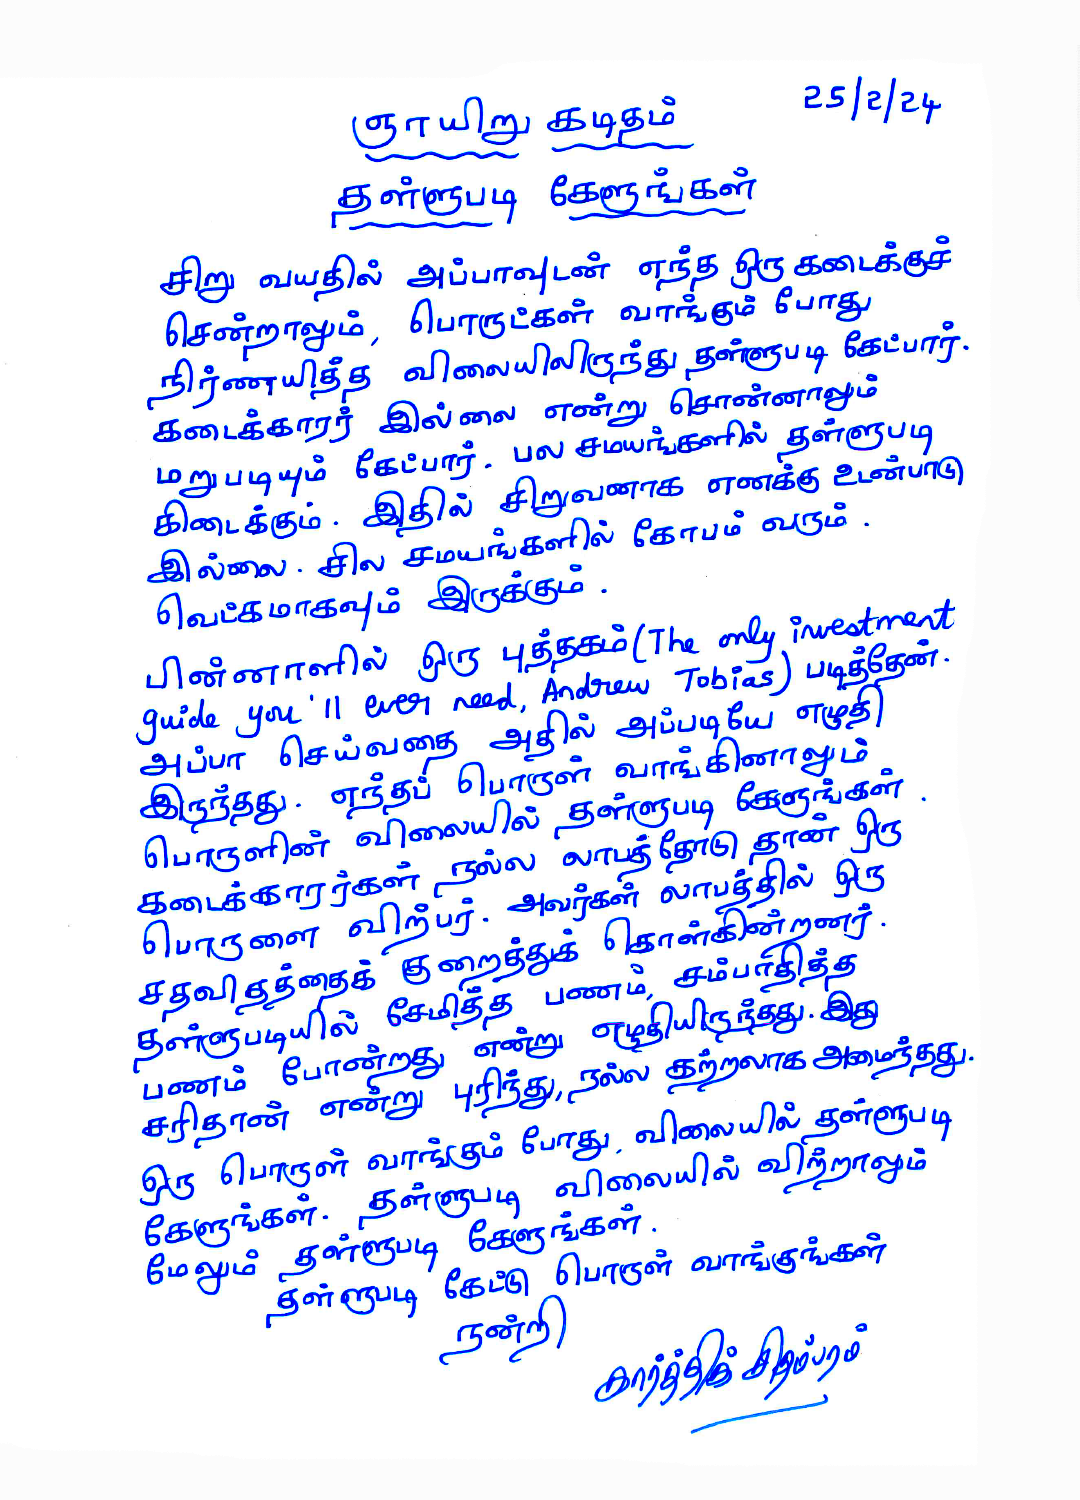 25/2/24
ஞாயிறு கடிதம்
தள்ளுபடி கேளுங்கள்
சிறு வயதில் அப்பாவுடன் எந்த ஒரு கடைக்குச்
சென்றாலும், பொருட்கள் வாங்கும் போது
நிர்ணயித்த விலையிலிருந்து தள்ளுபடி கேட்பார்.
கடைக்காரர் இல்லை என்று சொன்னாலும்
மறுபடியும் கேட்பார். பல சமயங்களில் தள்ளுபடி
கிடைக்கும். இதில் சிறுவனாக எனக்கு உடன்பாடு
இல்லை. சில சமயங்களில் கோபம் வரும்.
வெட்கமாகவும் இருக்கும்.
பின்னாளில் ஒரு புத்தகம் (The only investment
guide you'll ever need, Andrew Tobias) படித்தேன்.
அப்பா செய்வதை அதில் அப்படியே எழுதி
இருந்தது. எந்தப் பொருள் வாங்கினாலும்
பொருளின் விலையில் தள்ளுபடி கேளுங்கள்.
கடைக்காரர்கள் நல்ல லாபத்தோடு தான் ஒரு
பொருளை விற்பர். அவர்கள் லாபத்தில் ஒரு
சதவிதத்தைக் குறைத்துக் கொள்கின்றனர்.
தள்ளுபடியில் சேமித்த பணம், சம்பாதித்த
பணம் போன்றது என்று எழுதியிருந்தது. இது
சரிதான் என்று புரிந்து, நல்ல கற்றலாக அமைந்தது.
ஒரு பொருள் வாங்கும் போது, விலையில் தள்ளுபடி
கேளுங்கள். தள்ளுபடி விலையில் விற்றாலும்
மேலும் தள்ளுபடி கேளுங்கள்.
தள்ளுபடி கேட்டு பொருள் வாங்குங்கள்
நன்றி
கார்த்திக் சிதம்பரம்